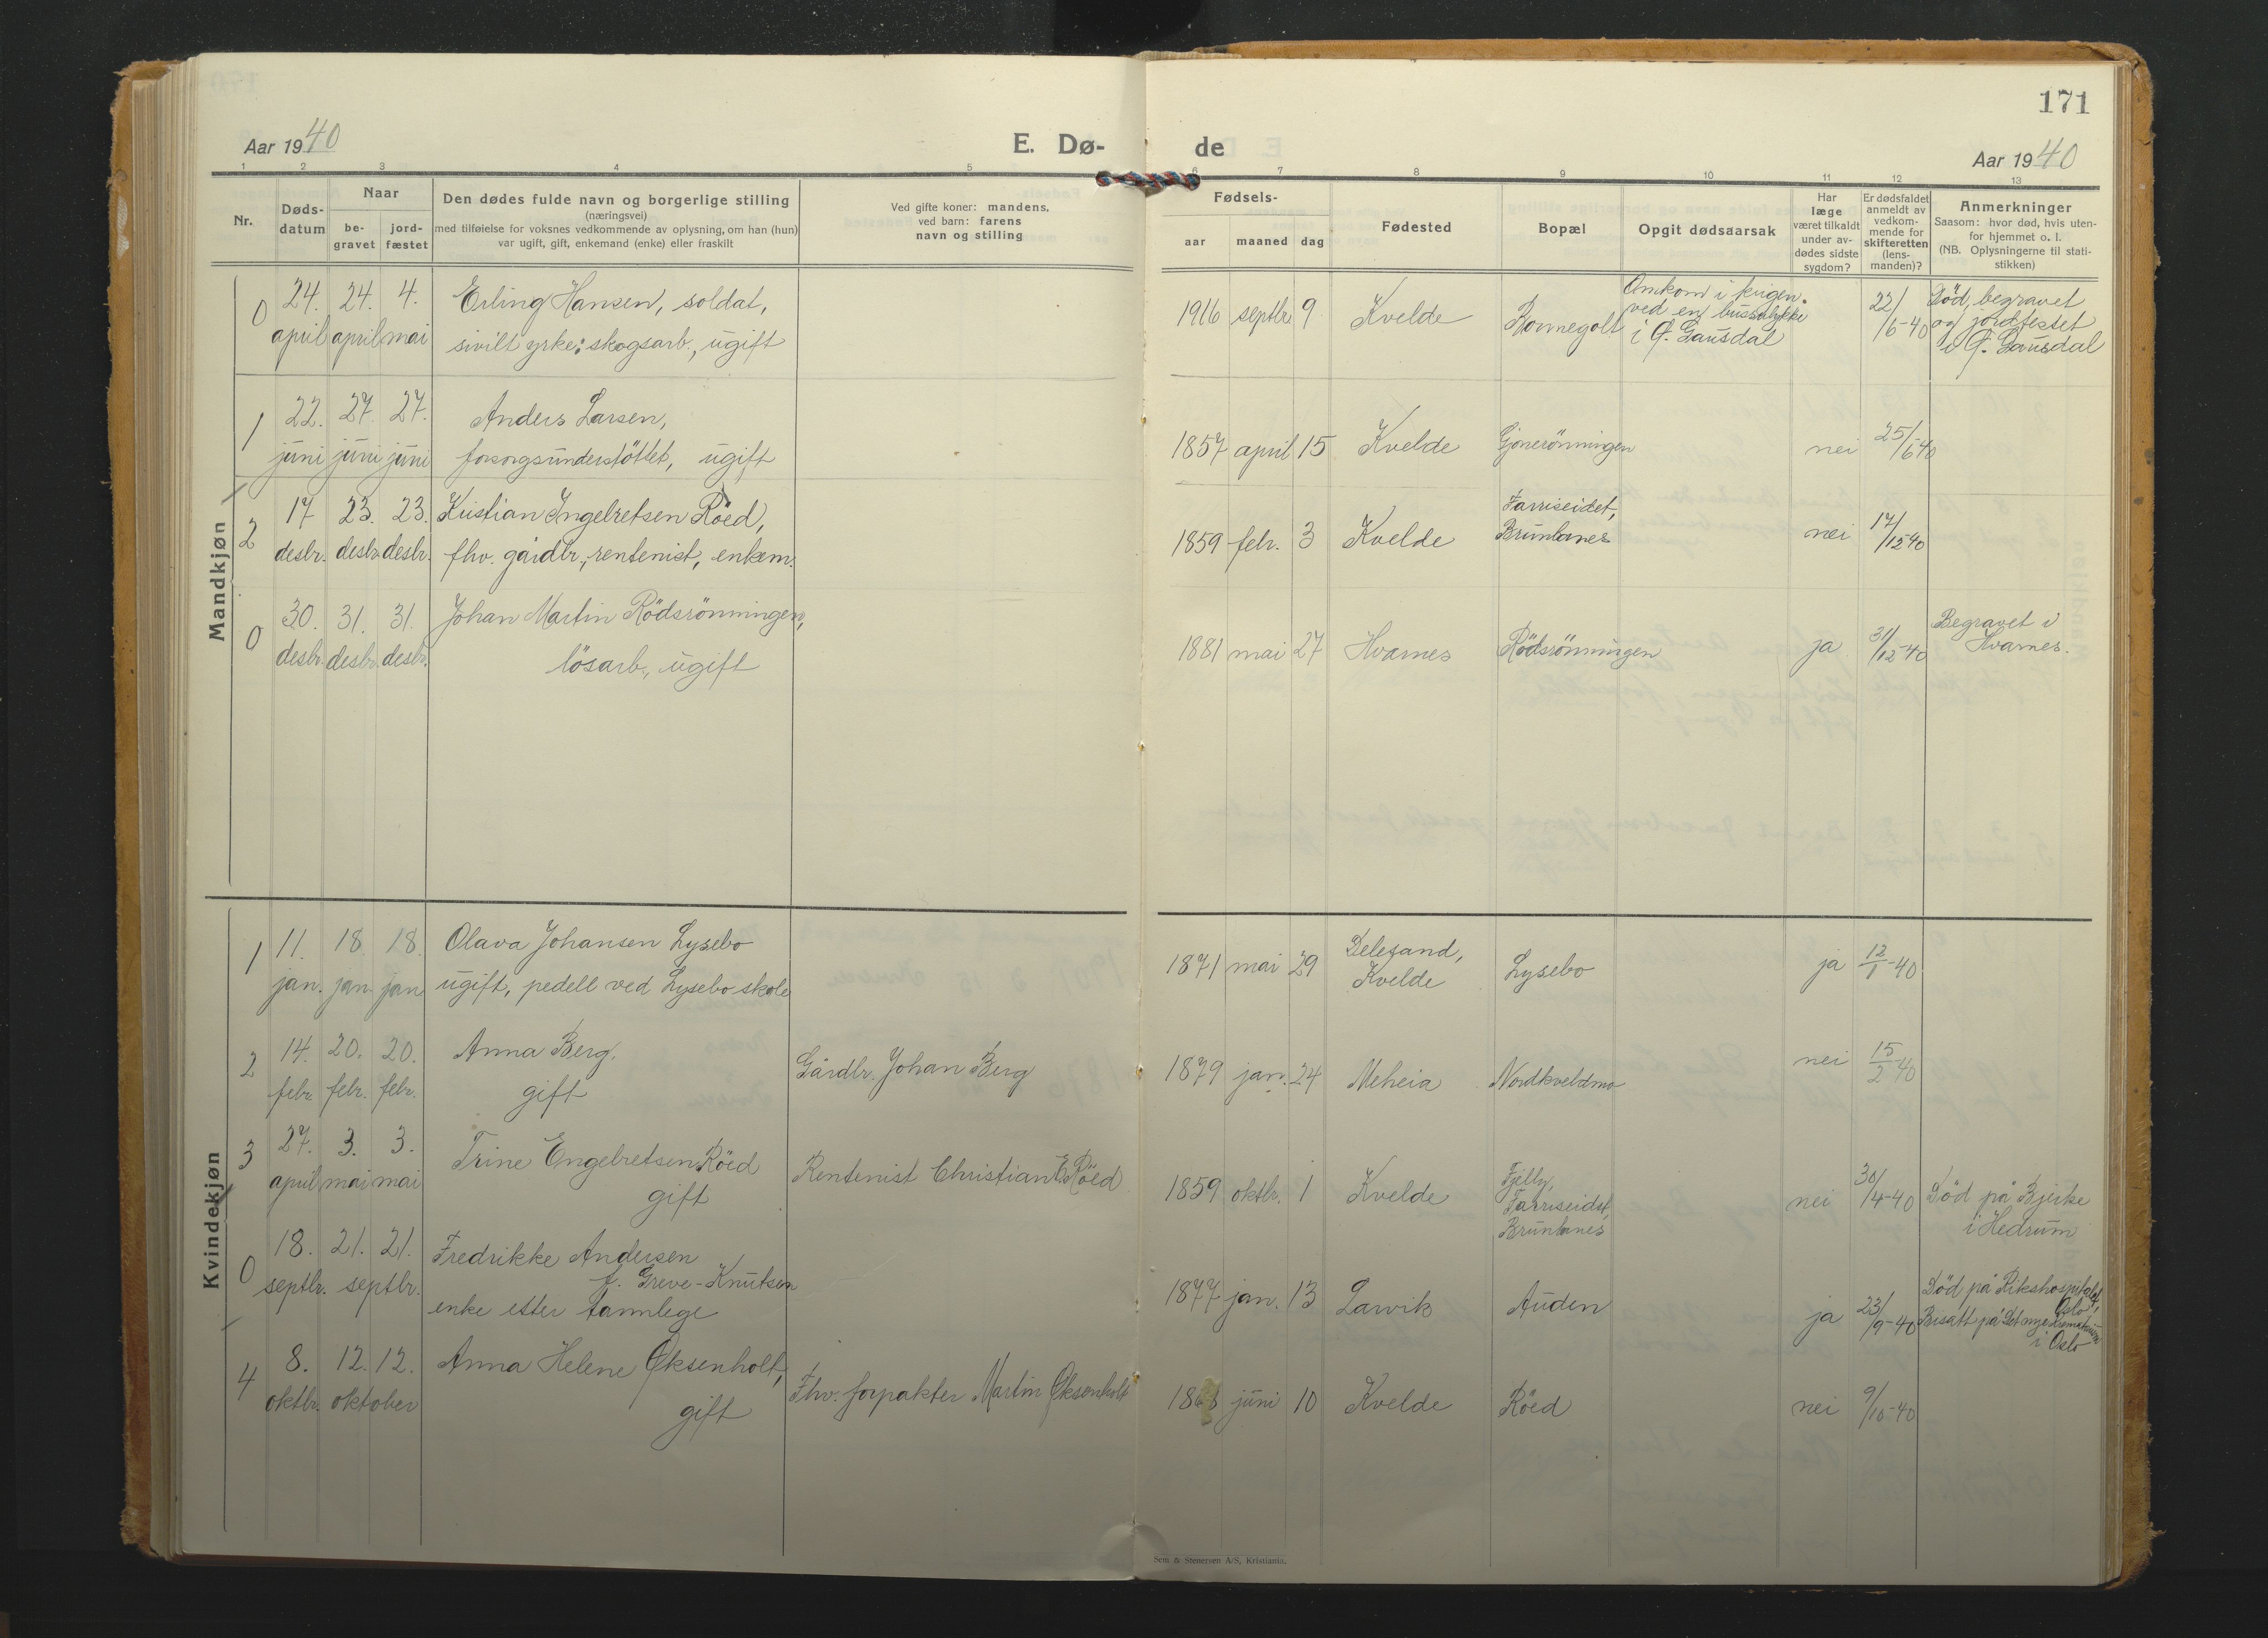 171
Aar 1940
E. Dø-
de
Aar 1940
1 2 3 4 5 6 7 8 9 10 11 12 13
Nr.
Døds-
datum
Naar
be-
gravet
jord-
fæstet
Den dødes fulde navn og borgerlige stilling
(næringsvei)
med tilføielse for voksnes vedkommende av oplysning, om han (hun)
var ugift, gift, enkemand (enke) eller fraskilt
Ved gifte koner: mandens,
ved barn: farens
navn og stilling
Fødsels-
aar maaned dag
Fødested
Bopæl
Opgit dødsaarsak
Har
læge
været tilkaldt
under av-
dødes sidste
sygdom?
Er dødsfaldet
anmeldt av
vedkom-
mende for
skifteretten
(lens-
manden)?
Anmerkninger
Saasom: hvor død, hvis uten-
for hjemmet o. l.
(NB. Oplysningerne til stati-
stikken)
Mandkjøn
0 24. 24. 4. Erling Hansen, soldat,
april april mai sivilt yrke: skogsarb., ugift
1916 septbr 9 Kvelde
Omkom i krigen
ved en bussulykke
i Ø. Gausdal
22/6-40
Död, begravet
og jordfestet
i Ø. Gausdal
1 22. 27. 27. Anders Larsen,
juni juni juni forsorgsunderstöttet, ugift
1857 april 15 Kvelde Gjonerönningen nei 25/6-40
2 17 23. 23. Kristian Ingelretsen Röed,
desbr. desbr. desbr. fhv. gårdbr., rentenist, enkem.
1859 febr. 3 Kvelde
Farriseidet,
Brunlanes
nei 17/12-40
0 30. 31. 31. Johan Martin Rödsrönningen,
desbr. desbr. desbr. lösarb., ugift
1881 mai 27 Hvarnes Rödsrönningen ja 31/12-40
Begravet i
Hvarnes.
Kvindekjøn
1 11. 18. 18. Olava Johansen Lysebo
jan. jan. jan. ugift, pedell ved Lysebo skole
1871 mai 29
Delesand,
Kvelde
Lysebo ja 12/1-40
2 14. 20. 20. Anna Berg,
febr. febr. febr. gift
Gårdbr. Johan Berg
1879 jan. 24 Meheia Nordkveldmo nei 15/2-40
3 27. 3. 3. Trine Engebretsen Röed
april mai mai gift
Rentenist Christian E. Röed
1859 oktbr. 1 Kvelde
Farriseidet,
Brunlanes
nei 30/4-40
Död på Bjerke
i Hedrum
0 18. 21. 21. Fredrikke Andersen
septbr. septbr. f. Greve-Knutsen
enke etter tannlege
1877 jan. 13 Larvik Auden ja 23/9-40
Död på Rikshospitalet,
Oslo.
Bisatt på Det nye krematorium
i Oslo
4 8. 12. 12. Anna Helene Øksenholt,
oktbr. oktober gift
Fhv. forpakter Martin Øksenholt
juni 10 Kvelde Röed nei 9/10-40
Sem & Stenersen A/S, Kristiania.